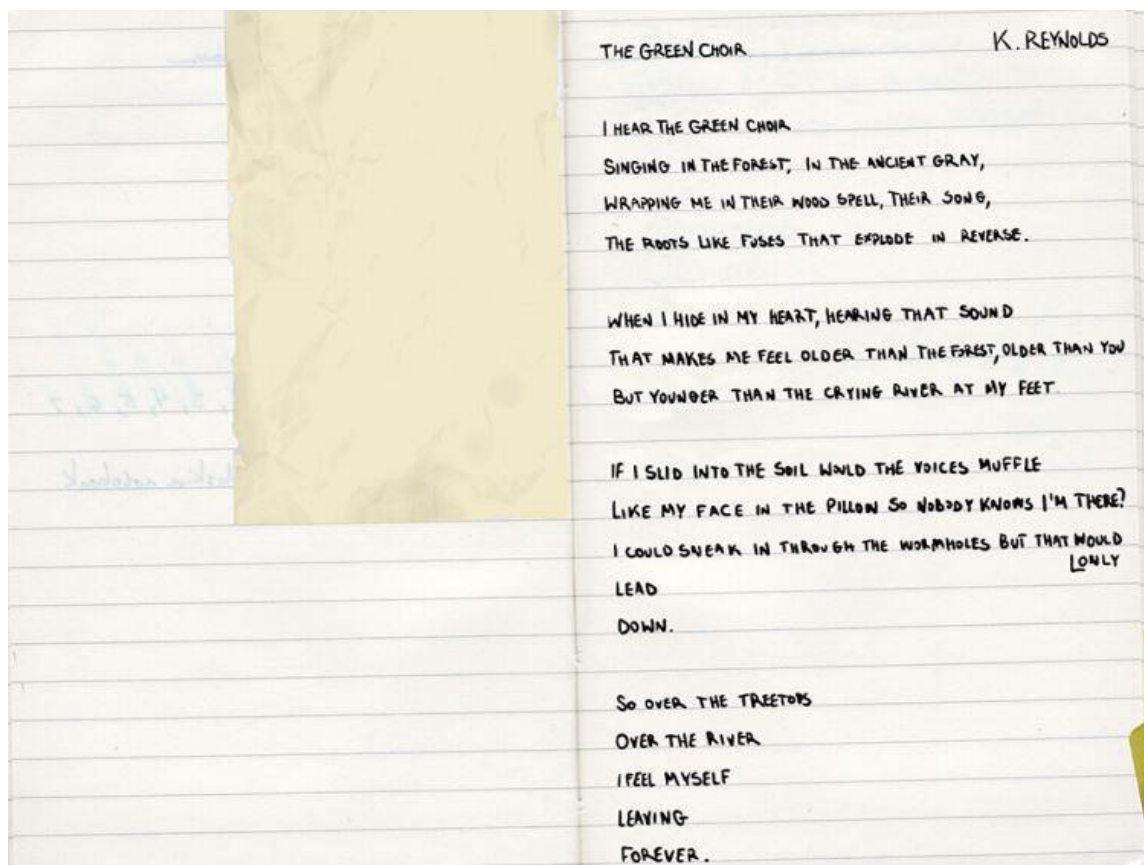 THE GREEN CHOIR
K. REYNOLDS
I HEAR THE GREEN CHOIR
SINGING IN THE FOREST, IN THE ANCIENT GRAY,
WRAPPING ME IN THEIR WOOD SPELL, THEIR SONG,
THE ROOTS LIKE FUSES THAT EXPLODE IN REVERSE.
WHEN I HIDE IN MY HEART, HEARING THAT SOUND
THAT MAKES ME FEEL OLDER THAN THE FOREST, OLDER THAN YOU
BUT YOUNGER THAN THE CRYING RIVER AT MY FEET.
IF I SLID INTO THE SOIL WOULD THE VOICES MUFFLE
LIKE MY FACE IN THE PILLOW SO NOBODY KNOWS I'M THERE?
I COULD SNEAK IN THROUGH THE WORMHOLES BUT THAT WOULD
ONLY
LEAD
DOWN.
SO OVER THE TREETOPS
OVER THE RIVER
I FEEL MYSELF
LEAVING
FOREVER.